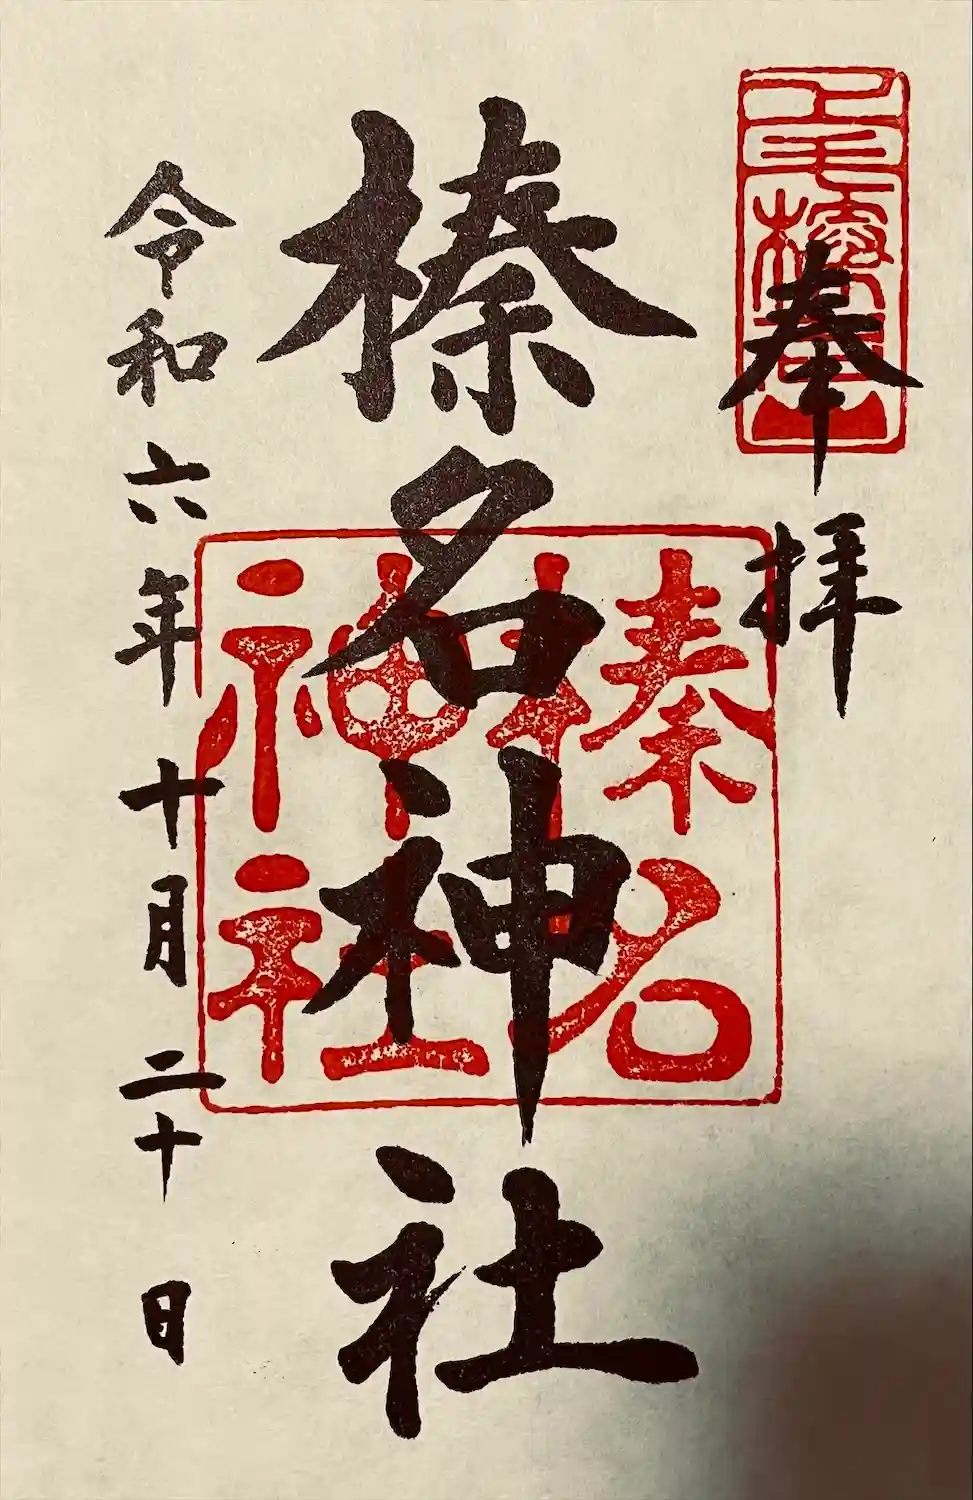 奉拝
榛名神社
榛名
神社
令和六年十月二十日